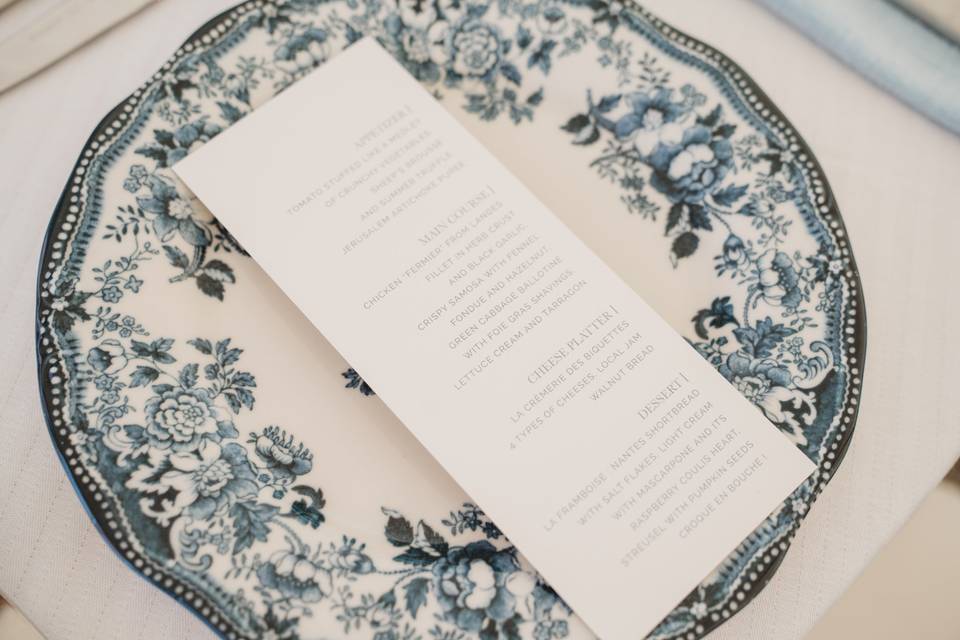 APPETIZER |
TOMATO STUFFED LIKE A MEDLEY
OF CRUNCHY VEGETABLES,
SHEEP'S BROUSSE
AND SUMMER TRUFFLE,
JERUSALEM ARTICHOKE PUREE
MAIN COURSE |
CHICKEN "FERMIER" FROM LANDES
FILLET IN HERB CRUST
AND BLACK GARLIC,
CRISPY SAMOSA WITH FENNEL
FONDUE AND HAZELNUT,
GREEN CABBAGE BALLOTINE
WITH FOIE GRAS SHAVINGS
LETTUCE CREAM AND TARRAGON
CHEESE PLATTER |
LA CRÈMERIE DES BIQUETTES
4 TYPES OF CHEESES, LOCAL JAM
WALNUT BREAD
DESSERT |
LA FRAMBOISE NANTES SHORTBREAD
WITH SALT FLAKES, LIGHT CREAM
WITH MASCARPONE AND ITS
RASPBERRY COULIS HEART,
STREUSEL WITH PUMPKIN SEEDS
CROQUE EN BOUCHE !